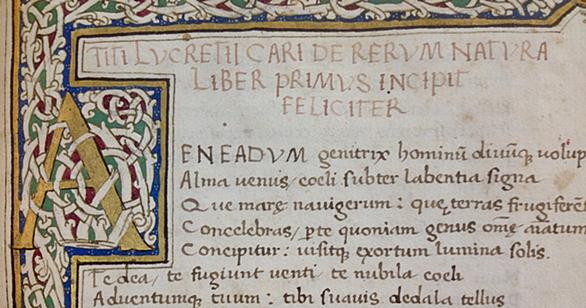 TITI LVCRETII CARI DE RERVM NATVRA
LIBER PRIMVS INCIPIT
FELICITER
AENEADVM genitrix hominũ diuũq; uolup
Alma uenus, coeli subter labentia signa
Que marę nauigerum: quę terras frugiferẽ
Concelebras, p̱te quoniam genus om̃e aiatum
Concipitur: uisitq; exortum lumina solis.
Te dea, te fugiunt uenti te nubila coeli
Aduentumq; tuum: tibi suauis dedala tellus